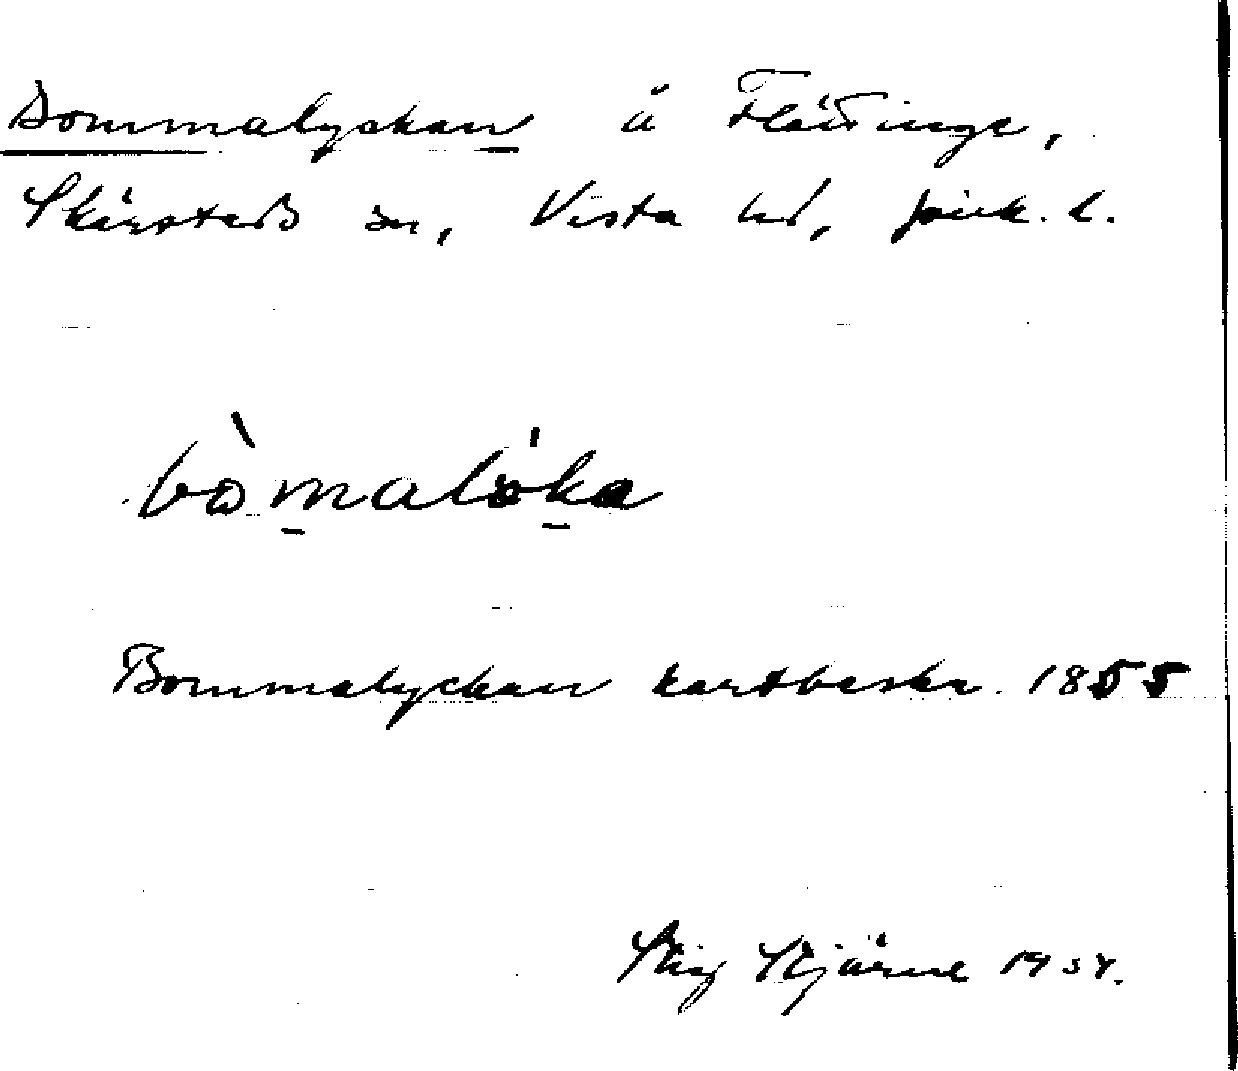 Bommalyckan å Flättinge,
Skärstads sn, Vista hd, Jönk. l.
bòmalöka
Bommalyckan kartbeskr. 1855
Stig Stjärne 1934.